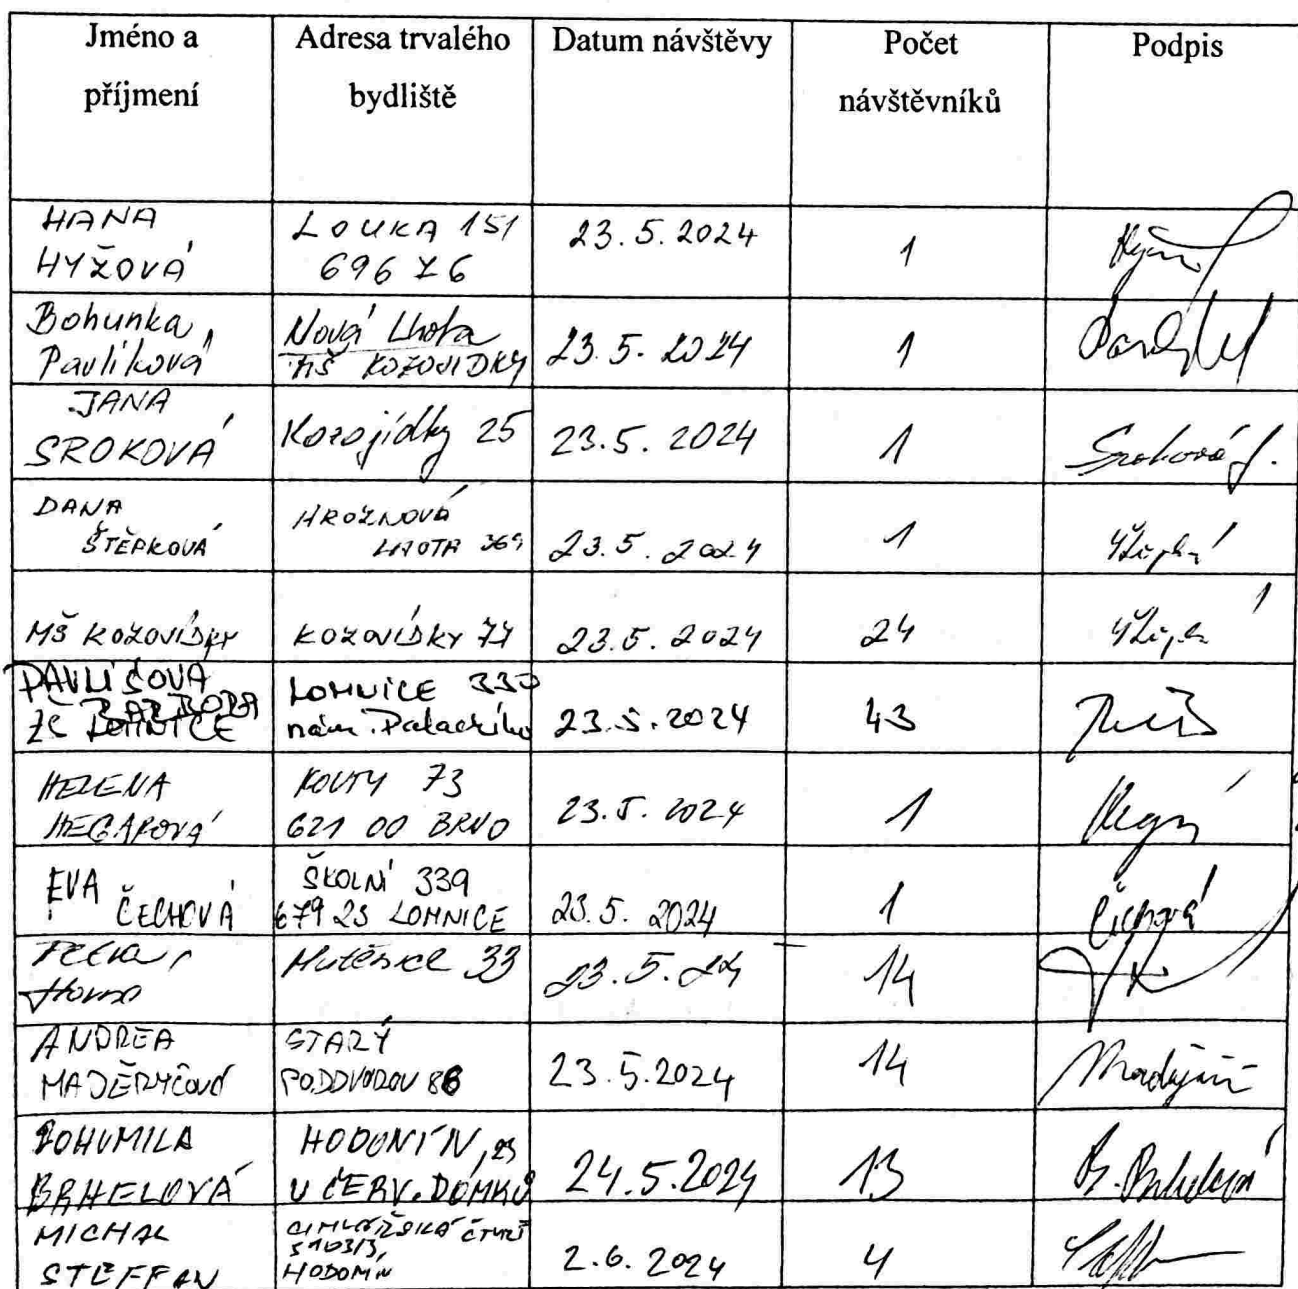 Jméno a příjmení
Adresa trvalého bydliště
Datum návštěvy
Počet návštěvníků
Podpis
HANA HYŽOVÁ
LOUKA 151
696 76
23.5.2024
1
Bohunka Pavlíková
Nová Lhota
MŠ KOZOJÍDKY
23.5.2024
1
JANA SROKOVÁ
Kozojídky 25
23.5.2024
1
Sroková J.
DANA ŠTĚPKOVÁ
HROZNOVÁ LHOTA 369
23.5.2024
1
MŠ KOZOJÍDKY
KOZOJÍDKY 77
23.5.2024
24
PAVLIŠOVA BARBORA
ZŠ LOMNICE
LOMNICE 330
nám. Palackého
23.5.2024
43
HELENA
KOUTY 73
621 00 BRNO
23.5.2024
1
EVA ČECHOVÁ
ŠKOLNÍ 339
679 23 LOMNICE
23.5.2024
1
Čechová
Petra
Mutěnice 33
23.5.24
14
ANDREA
STARÝ PODDVOROV 86
23.5.2024
14
BOHUMILA BRHELOVÁ
HODONÍN, 23
U ČERV. DOMKŮ
24.5.2024
13
B. Brhelová
MICHAL STEFFAN
ČTVRŤ
HODONÍN
2.6.2024
4